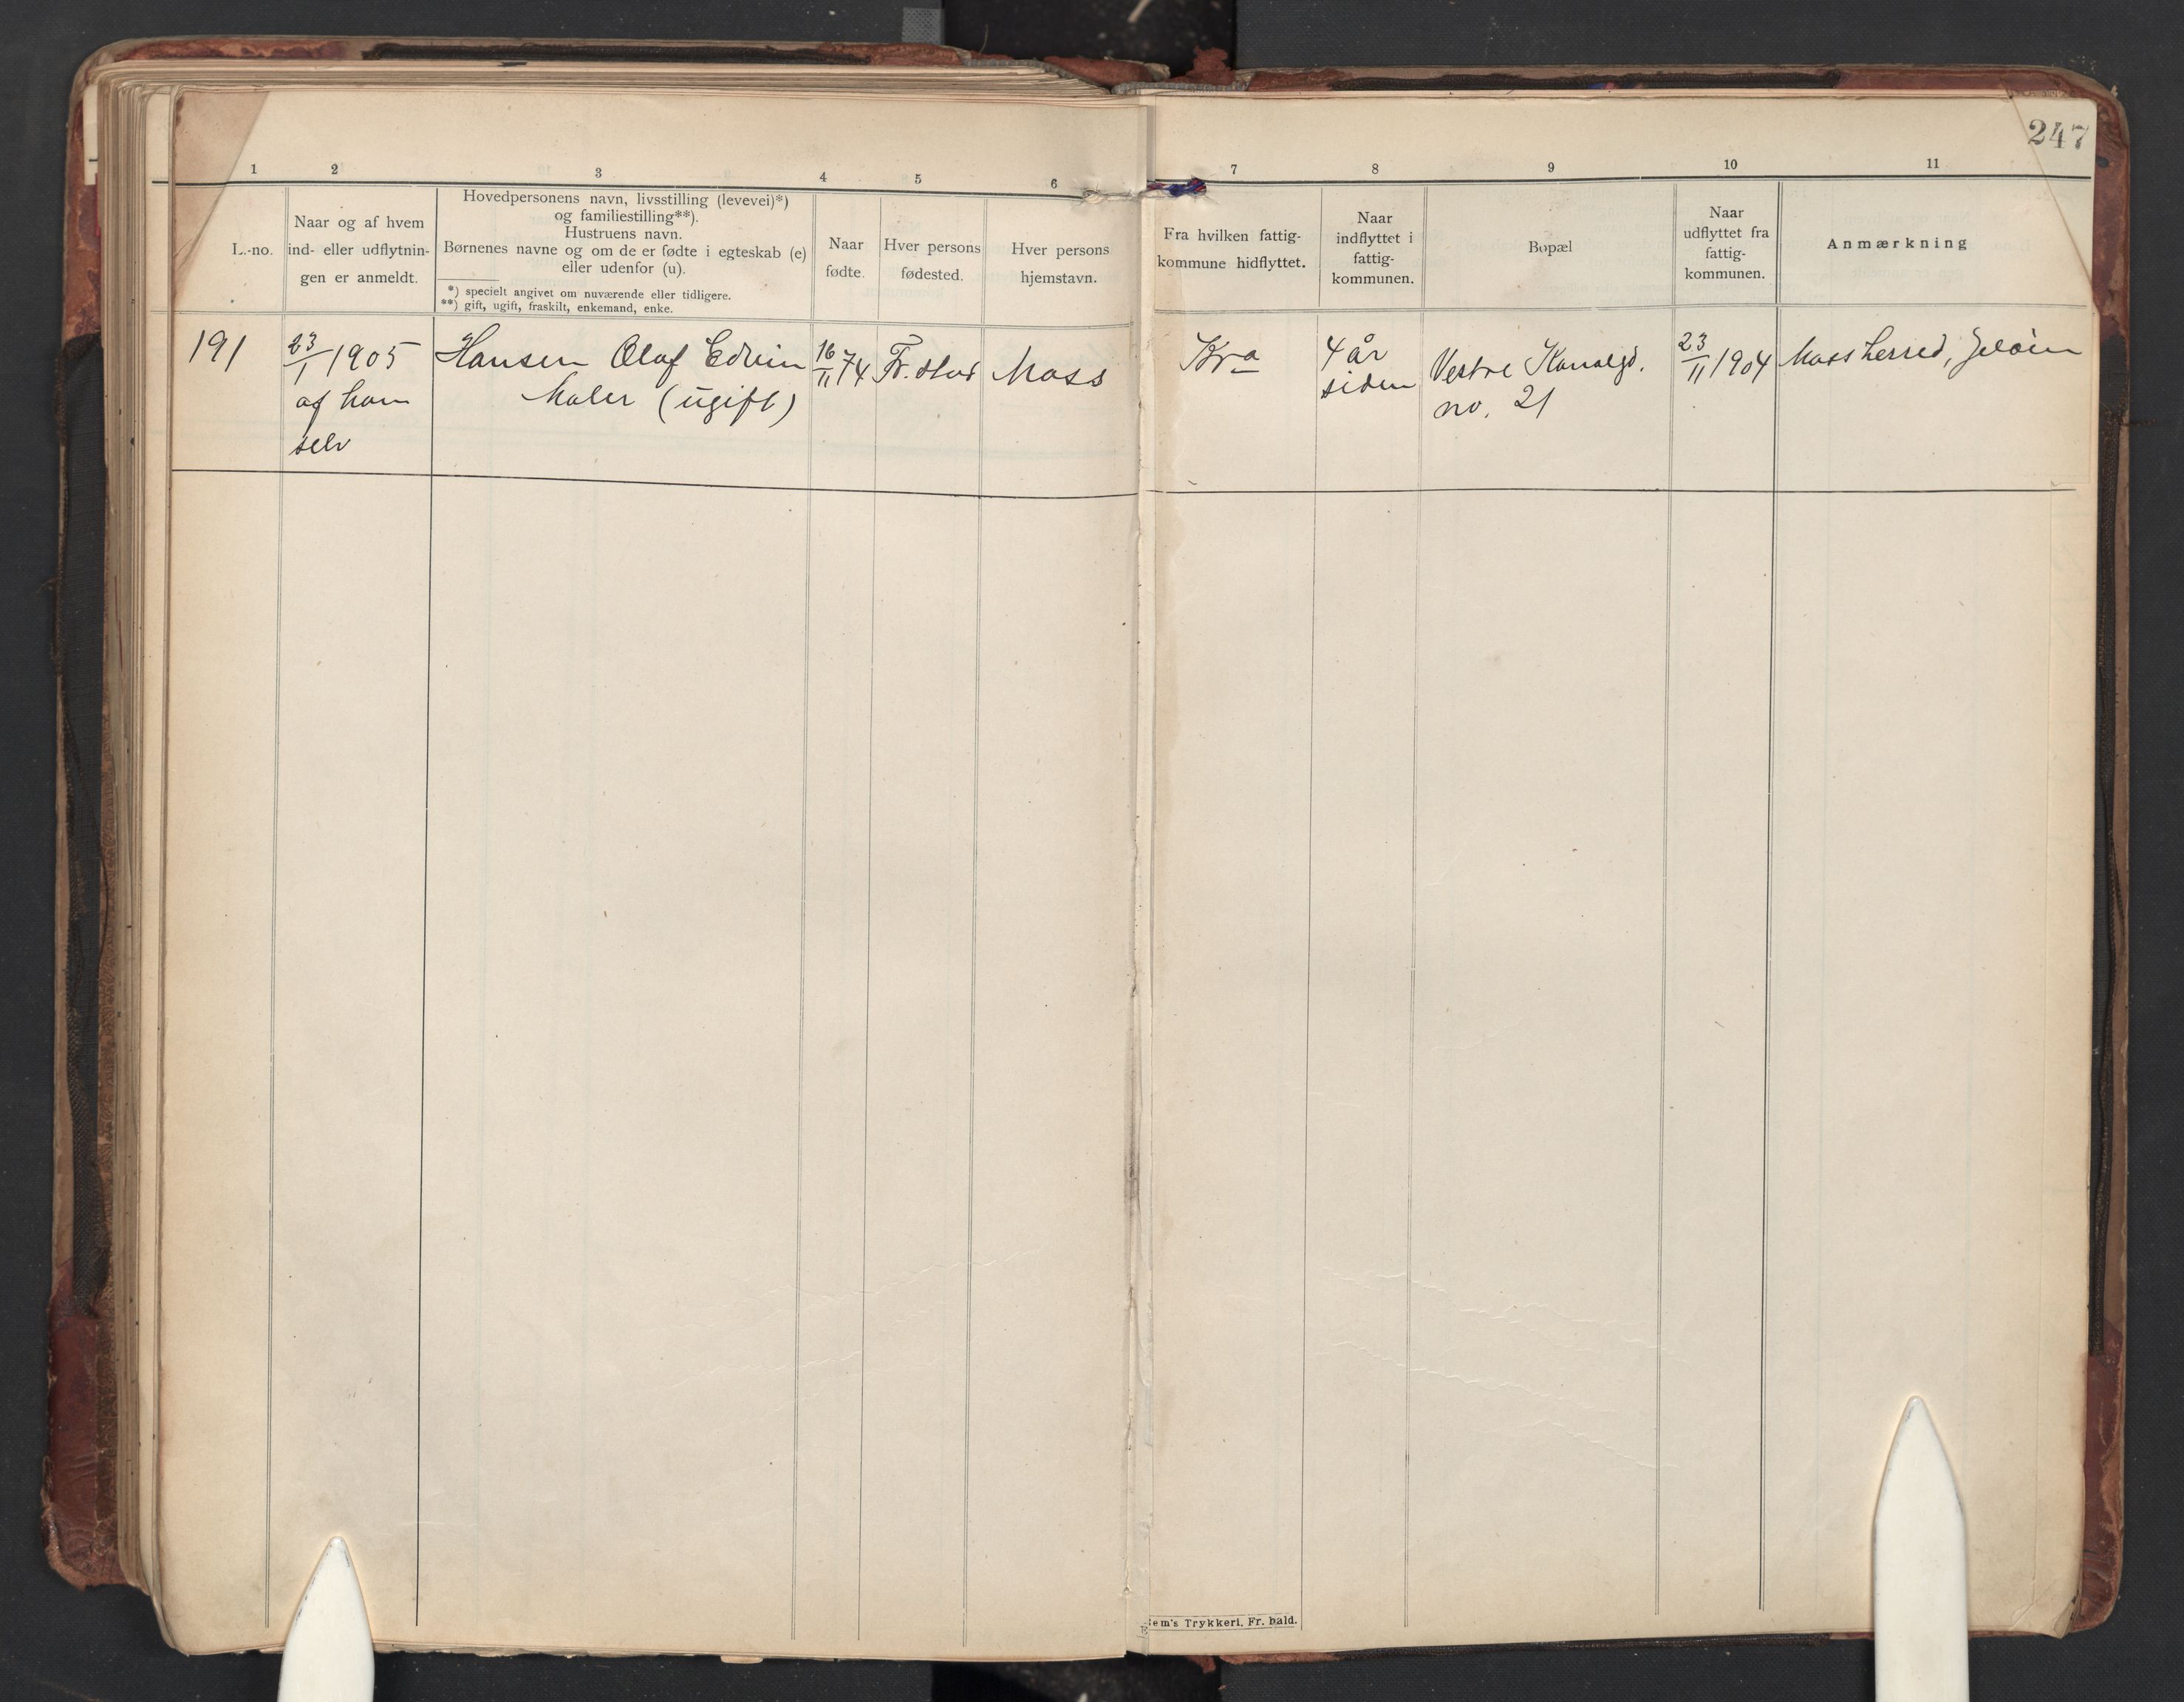 247
1 2 3 4 5 6 7 8 9 10 11
L.-no.
Naar og af hvem
ind- eller udflytnin-
gen er anmeldt.
Hovedpersonens navn, livsstilling (levevei)*)
og familiestilling**).
Hustruens navn.
Børnenes navne og om de er fødte i egteskab (e)
eller udenfor (u).
*) specielt angivet om nuværende eller tidligere.
**) gift, ugift, fraskilt, enkemand, enke.
Naar
fødte.
Hver persons
fødested.
Hver persons
hjemstavn.
Fra hvilken fattig-
kommune hidflyttet.
Naar
indflyttet i
fattig-
kommunen.
Bopæl
Naar
udflyttet fra
fattig-
kommunen.
Anmærkning
191
23/1 1905
af ham
selv
Hansen Olaf Edvin
Maler (ugift)
16/11 74
Fr.stad
Moss
Kra
4 år
siden
Vestre Kanalgd.
no. 21
23/11 1904
Moss herred, Jeløen
em's Trykkeri, Fr. hald.